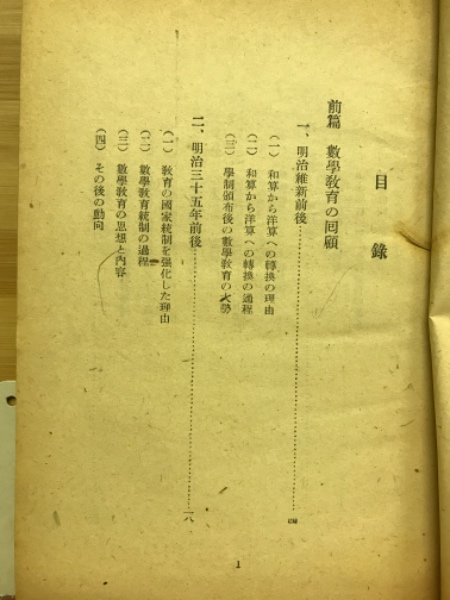 目錄
前篇 數學教育の回顧
一、明治維新前後……………………四
(一) 和算から洋算への轉換の理由
(二) 和算から洋算への轉換の過程
(三) 學制頒布後の數學教育の大勢
二、明治三十五年前後……………………一八
(一) 教育の國家統制を強化した理由
(二) 數學教育統制の過程
(三) 數學教育の思想と内容
(四) その後の動向
1